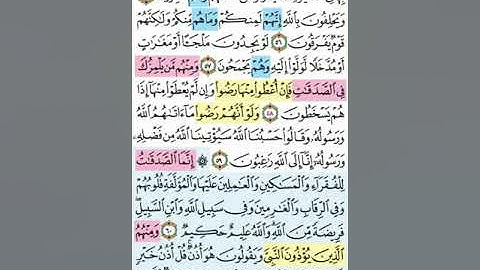 وَيَحْلِفُونَ بِٱللَّهِ إِنَّهُمْ لَمِنكُمْ وَمَا هُم مِّنكُمْ وَلَٰكِنَّهُمْ
قَوْمٌ يَفْرَقُونَ ٥٦ لَوْ يَجِدُونَ مَلْجَـًٔا أَوْ مَغَٰرَٰتٍ
أَوْ مُدَّخَلًا لَّوَلَّوْا۟ إِلَيْهِ وَهُمْ يَجْمَحُونَ ٥٧ وَمِنْهُم مَّن يَلْمِزُكَ
فِى ٱلصَّدَقَٰتِ فَإِنْ أُعْطُوا۟ مِنْهَا رَضُوا۟ وَإِن لَّمْ يُعْطَوْا۟ مِنْهَآ إِذَا
هُمْ يَسْخَطُونَ ٥٨ وَلَوْ أَنَّهُمْ رَضُوا۟ مَآ ءَاتَىٰهُمُ ٱللَّهُ
وَرَسُولُهُۥ وَقَالُوا۟ حَسْبُنَا ٱللَّهُ سَيُؤْتِينَا ٱللَّهُ مِن فَضْلِهِۦ
وَرَسُولُهُۥٓ إِنَّآ إِلَى ٱللَّهِ رَٰغِبُونَ ٥٩ إِنَّمَا ٱلصَّدَقَٰتُ
لِلْفُقَرَآءِ وَٱلْمَسَٰكِينِ وَٱلْعَٰمِلِينَ عَلَيْهَا وَٱلْمُؤَلَّفَةِ قُلُوبُهُمْ
وَفِى ٱلرِّقَابِ وَٱلْغَٰرِمِينَ وَفِى سَبِيلِ ٱللَّهِ وَٱبْنِ ٱلسَّبِيلِ
فَرِيضَةً مِّنَ ٱللَّهِ وَٱللَّهُ عَلِيمٌ حَكِيمٌ ٦٠ وَمِنْهُمُ
ٱلَّذِينَ يُؤْذُونَ ٱلنَّبِىَّ وَيَقُولُونَ هُوَ أُذُنٌ قُلْ أُذُنُ خَيْرٍ